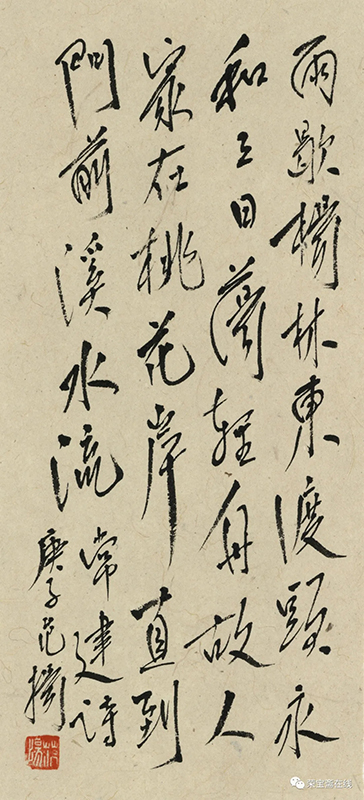 雨歇楊林東渡頭永
和三日蕩輕舟故人
家在桃花岸直到
門前溪水流
常建詩
庚子范揚
荣宝斋在线